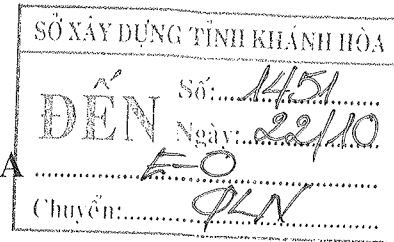 SỞ XÂY DỰNG TỈNH KHÁNH HÒA
ĐẾN
Số: 1451
Ngày: 22/10
A
E-O
Chuyển: QLN